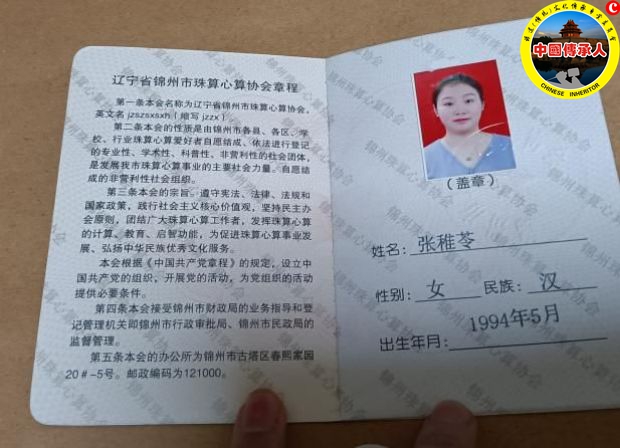 辽宁省锦州市珠算心算协会章程
第一条本会名称为辽宁省锦州市珠算心算协会,
英文名 jzszsxsxh（缩写 jzzx）
第二条本会的性质是由锦州市各县、各区、学
校、行业珠算心算爱好者自愿结成、依法进行登记
的专业性、学术性、科普性、非营利性的社会团体,
是发展我市珠算心算事业的主要社会力量。自愿结
成的非营利性社会组织。
第三条本会的宗旨：遵守宪法、法律、法规和
国家政策，践行社会主义核心价值观，坚持民主办
会原则，团结广大珠算心算工作者，发挥珠算心算
的计算、教育、启智功能，为促进珠算心算事业发
展、弘扬中华民族优秀文化服务。
本会根据《中国共产党章程》的规定，设立中
国共产党的组织、开展党的活动，为党组织的活动
提供必要条件。
第四条本会接受锦州市财政局的业务指导和登
记管理机关即锦州市行政审批局、锦州市民政局的
监督管理。
第五条本会的办公所为锦州市古塔区春熙家园
20#-5号。邮政编码为121000。
（盖章）
姓名：张稚苓
性别：女 民族：汉
出生年月：1994年5月
锦州珠算心算协会
中國傳承人
CHINESE INHERITOR
C